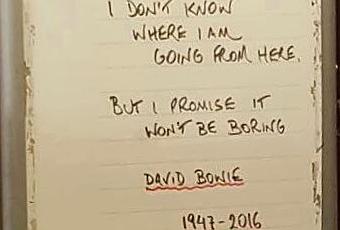 I DON'T KNOW
WHERE I AM
GOING FROM HERE,
BUT I PROMISE IT
WON'T BE BORING
DAVID BOWIE
1947-2016